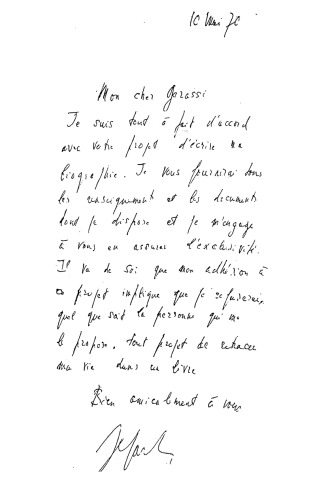 10 Mai 70
Mon cher Garassi
Je suis tout à fait d'accord
avec votre projet d'écrire ma
biographie. Je vous fournirai tous
les renseignements et les documents
dont je dispose et je m'engage
à vous en assurer l'exclusivité.
Il va de soi que mon adhésion à
ce projet implique que je refuserai
quel que soit la personne qui me
le propose, tout projet de retracer
ma vie dans un livre
Bien amicalement à vous